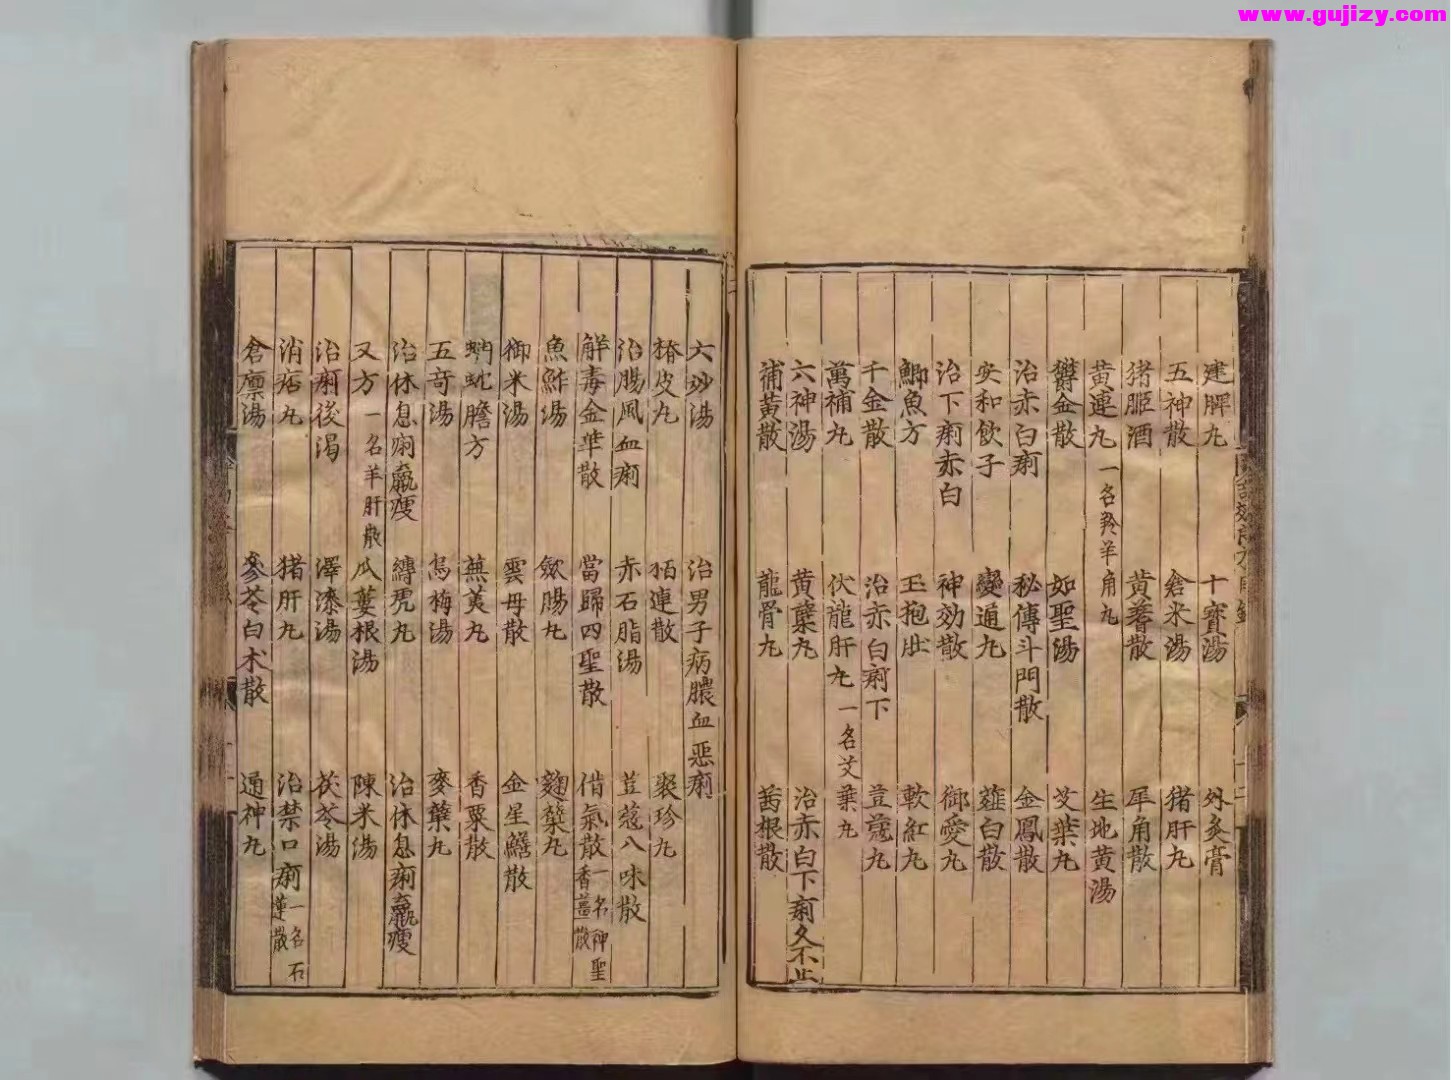 www.gujizy.com
建脾丸 十寶湯 外灸膏
五神散 倉米湯 猪肝丸
猪胵酒 黄耆散 犀角散
黄連丸一名羚羊角丸 生地黄湯
欝金散 如聖湯 艾葉丸
治赤白痢 秘傳斗門散 金鳳散
安和飲子 變通丸 薤白散
治下痢赤白 神効散 御愛丸
鯽魚方 玉抱肚 軟紅丸
千金散 治赤白痢下 荳蔲丸
萬補丸 伏龍肝丸一名艾葉丸
六神湯 黄蘗丸 治赤白下痢久不止
補黄散 龍骨丸 茜根散
六妙湯 治男子病膿血惡痢
椿皮丸 栢連散 聚珍丸
治腸風血痢 赤石脂湯 荳蔲八味散
解毒金華散 當歸四聖散 借氣散一名神聖香薑散
魚鮓湯 斂腸丸 麯蘗丸
御米湯 雲母散 金星鱔散
蚺蛇膽方 蕪荑丸 香粟散
五奇湯 烏梅湯 麥蘗丸
治休息痢羸瘦 縛虎丸 治休息痢羸瘦
又方一名羊肝散 瓜蔞根湯 陳米湯
治痢後渴 澤漆湯 茯苓湯
消痞丸 猪肝丸 治禁口痢一名石蓮散
倉廪湯 參苓白术散 通神丸